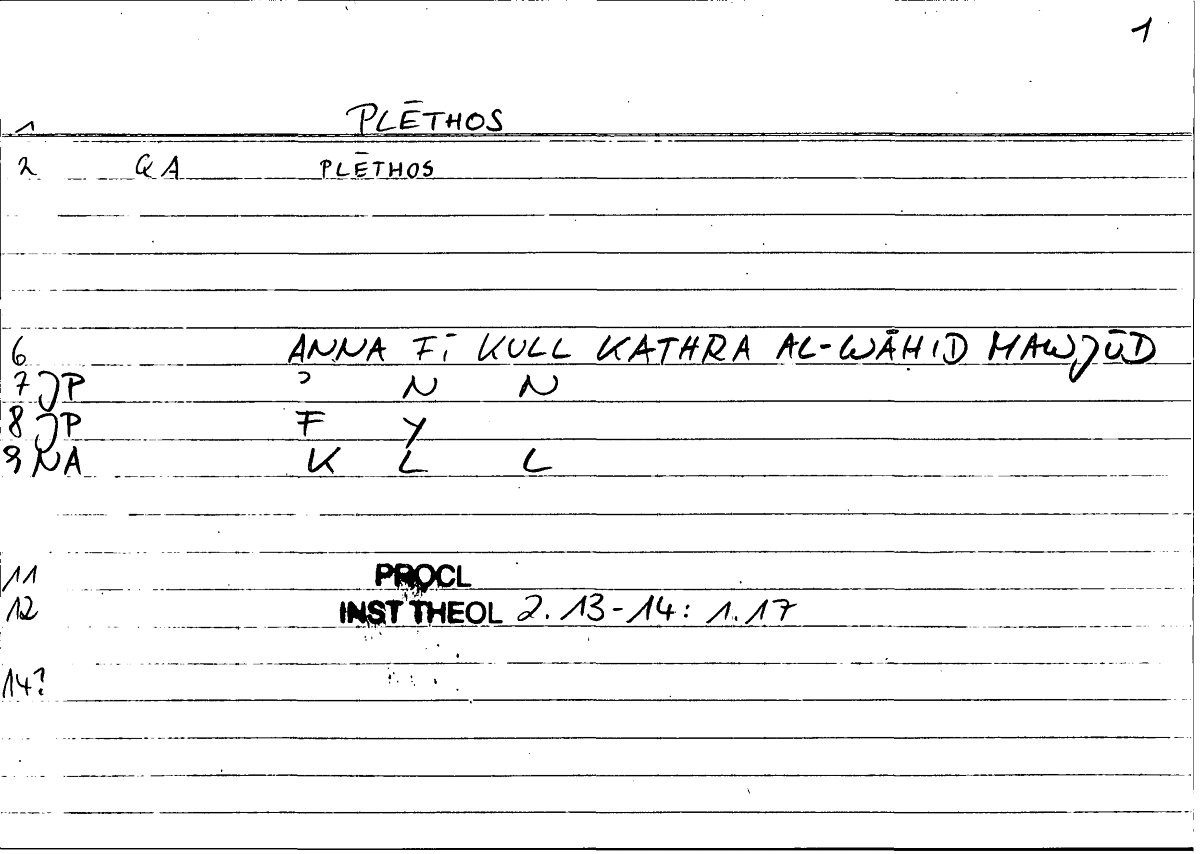 1
1 PLĒTHOS
2 QA PLĒTHOS
6 ANNA FĪ KULL KATHRA AL-WĀHID MAWJŪD
7 JP ɔ N N
8 JP F Y
9 NA K L L
11 PROCL
12 INST THEOL 2.13-14: 1.17
14?